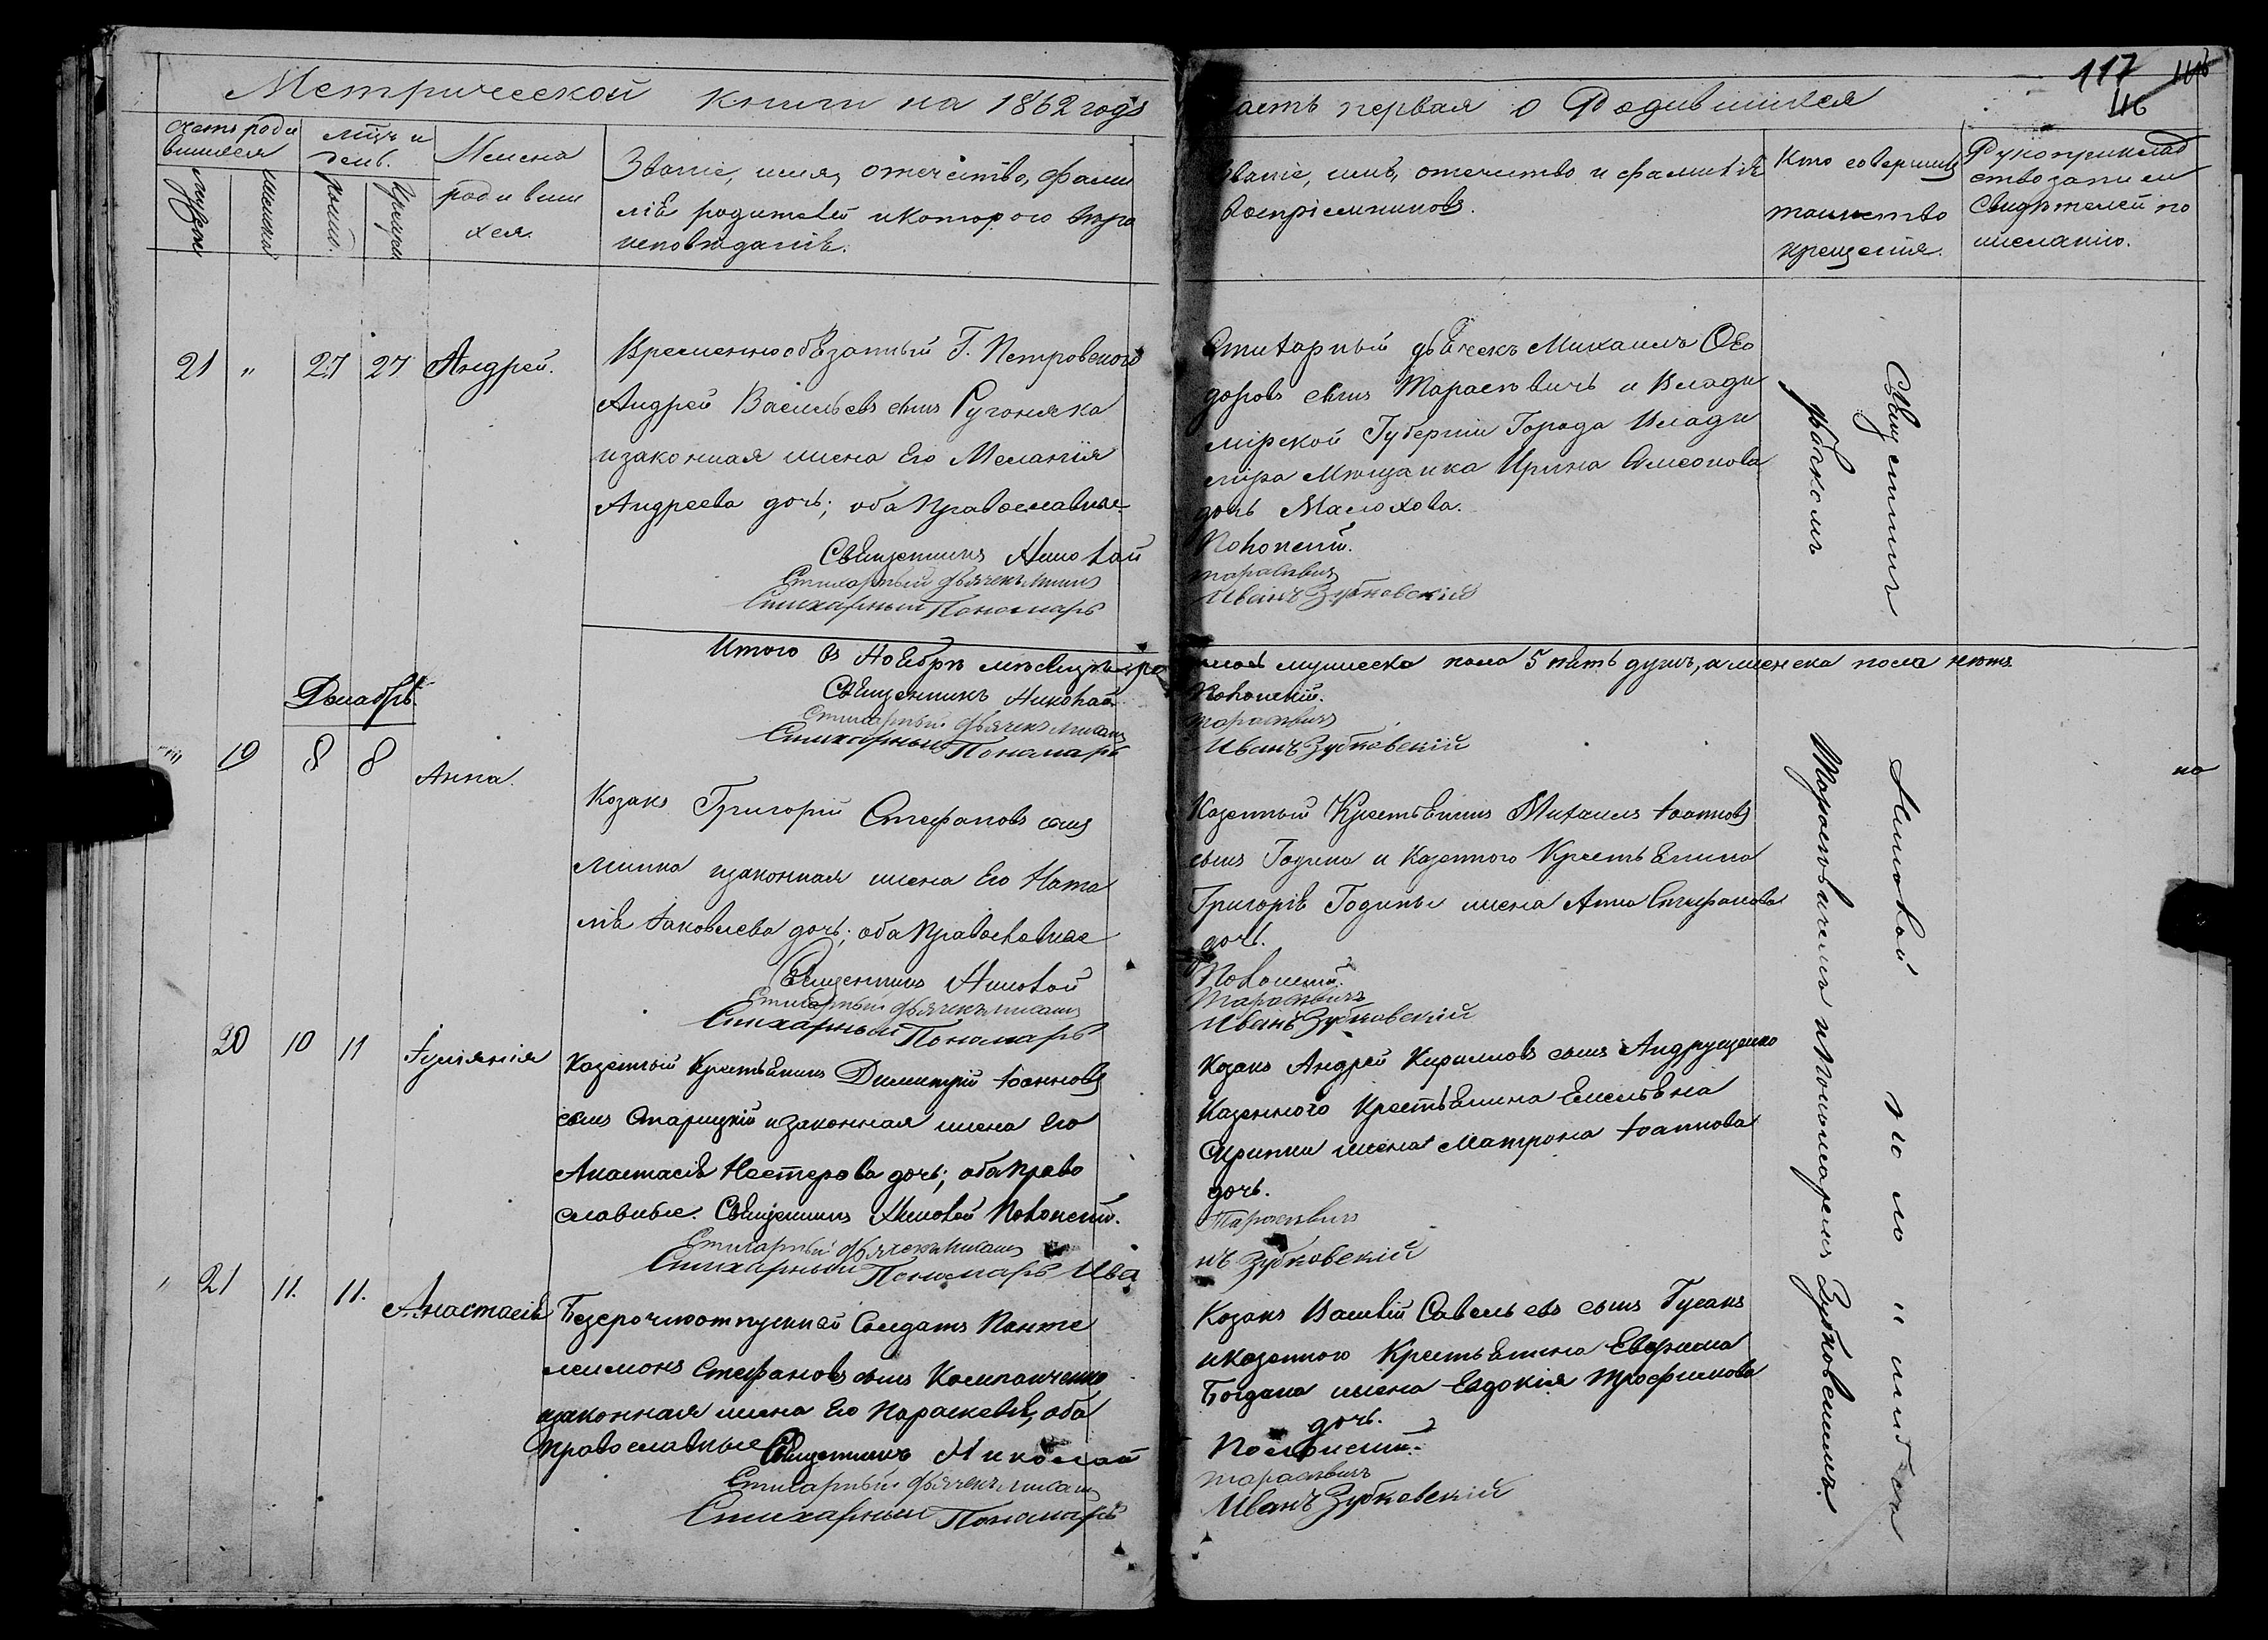 Метрической книги на 1862 годъ
часть первая о Родившихся
117
116
счетъ роди
вшихся
мѣсяцъ и
день.
Имена
родивши
хся.
Званіе, имя, отечество, фами
лія родителей и котораго вѣро
исповѣданія.
Званіе, имя, отечество и фамилія
воспріемниковъ.
Кто совершилъ
таинство
крещенія.
Рукоприклад
ство записи
свидѣтелей по
желанію.
21 " 27 27 Андрей.
Временнообязанный Г. Петровского
Андрей Васильевъ сынъ
и законная жена Его Меланія
Андреева дочь; оба православные
Священникъ Николай
Стихарный дьячекъ Михаилъ
Стихарный Пономарь
Стихарный дьячекъ Михаилъ Ѳео
доровъ сынъ Тарасѣвичъ и Влади
мірской Губерніи Города Влади
міра Мѣщанка Ирина Симеонова
дочь Малохова.
Полонскій.
Тарасѣвичъ
Иванъ Зубковскій
Итого въ Ноябрѣ мѣсяцѣ
мужеска пола 5 пять душъ, а женска пола нѣтъ.
Священникъ Николай
Стихарный дьячекъ Михаилъ
Стихарный Пономарь
Полонскій.
Тарасѣвичъ
Иванъ Зубковскій
Декабрь.
19 8 8 Анна.
Козакъ Григорій Стефановъ сынъ
законная жена Его Ната
лія Іаковлева дочь; оба Православные
Священникъ Николай
Стихарный дьячекъ Михаилъ
Стихарный Пономарь
Казенный Крестьянинъ Михаилъ Іоанновъ
сынъ Година и Казенного Крестьянина
Григорія Годины жена Анна Стефанова
дочь.
Полонскій.
Тарасѣвичъ
Иванъ Зубковскій
20 10 11 Іуліянія
Казенный Крестьянинъ Димитрій Іоанновъ
сынъ Старицкій и законная жена Его
Анастасія Нестерова дочь; оба право
славные. Священникъ Николай Полонскій.
Стихарный дьячекъ Михаилъ
Стихарный Пономарь Ива
Козакъ Андрей Кирилловъ сынъ Андрущенко
Казенного Крестьянина Емельяна
жена Матрона Іоаннова
дочь.
Тарасѣвичъ
нъ Зубковскій
" 21 11. 11. Анастасія
Безсрочноотпускной Солдатъ Панте
леимонъ Стефановъ сынъ Компанченко
законная жена Его Параскевія, оба
православные Священникъ Николай
Стихарный дьячекъ Михаилъ
Стихарный Пономарь
Козакъ Василій Савельевъ сынъ Гусакъ
и казенного Крестьянина
Богдана жена Евдокія Трофимова
дочь.
Полонскій.
Тарасѣвичъ
Иванъ Зубковскій
Священникъ Николай Полонскій съ
дьячкомъ Тарасѣвичемъ и Пономаремъ Зубковскимъ.